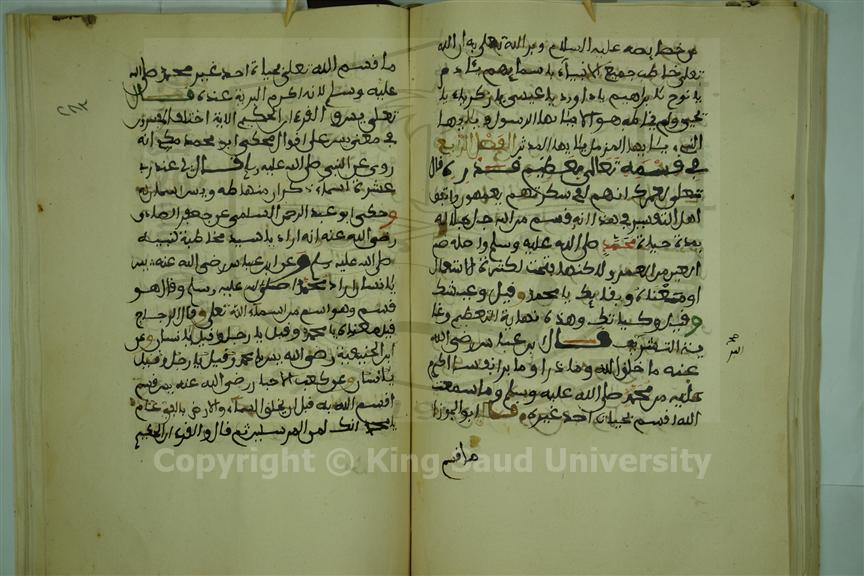 من خصايصه عليه السلام وبر الله تعلى به ان الله
تعلى خاطب جميع الانبياء باسمايهم يـادم
يانوح يابراهيم ياداوود ياعيسى يازكرياء يا
يحيى ولم يخاطبه هو الا يايها الرسول يايها
النبي يايها المزمل يايها المدثر الفصل الرابع
في قسمه تعالى بعظيم قدره قال
تعلى لعمرك انهم لفي سكرتهم يعمهون اتفق
اهل التفسير في هذا انه قسم من الله جل جلاله
بمدة حياة محمد صلى الله عليه وسلم واصله ضم
العين من العمر ولاكنها فتحت لكثرة الاستعمال
ومعناه وبقايك يا محمد وقيل وعيشك
وقيل وحياتك وهذه نهاية التعظيم وغا
ية التشريف قال ابن عباس رضي الله
عنه ما خلق الله وما ذرا وما برا نفسا اكرم
عليه من محمد صلى الله عليه وسلم وما سمعت
الله اقسم بحياة احد غيره وقال ابو الجوزا
ما اقسم
ما قسم الله تعلى بحياة احد غير محمد صلى الله
عليه وسلم لانه اكرم البرية عنده قال
تعلى يس والقرءان الحكيم الاية اختلف المفسرون
في معنى يس على اقوال فحكى ابو محمد مكي انه
روي عن النبي صلى الله عليه وسلم قال لي عند ربي
عشرة اسماء ذكر ان منها طه ويس اسمان له
وحكى ابو عبد الرحمن السلمي عن جعفر الصادق
رضي الله عنه انه اراد ياسيد مخاطبة لنبيه
صلى الله عليه وسلم وعن ابن عباس رضي الله عنه يس
ياانسان اراد محمدا صلى الله عليه وسلم وقال هو
قسم وهو اسم من اسماء الله تعلى وقال الزجاج
قيل معناه يا محمد وقيل يا رجل وقيل يا انسان وعن
ابن الحنيفية رضي الله يس يا محمد وقيل يا رجل وقيل
ياانسان وعن كعب الاحبار رضي الله عنه يس قسم
اقسم الله به قبل ان يخلق السماء والارض بالفي عام
يا محمد انك لمن المرسلين ثم قال والقرءان الحكيم
Copyright © King Saud University